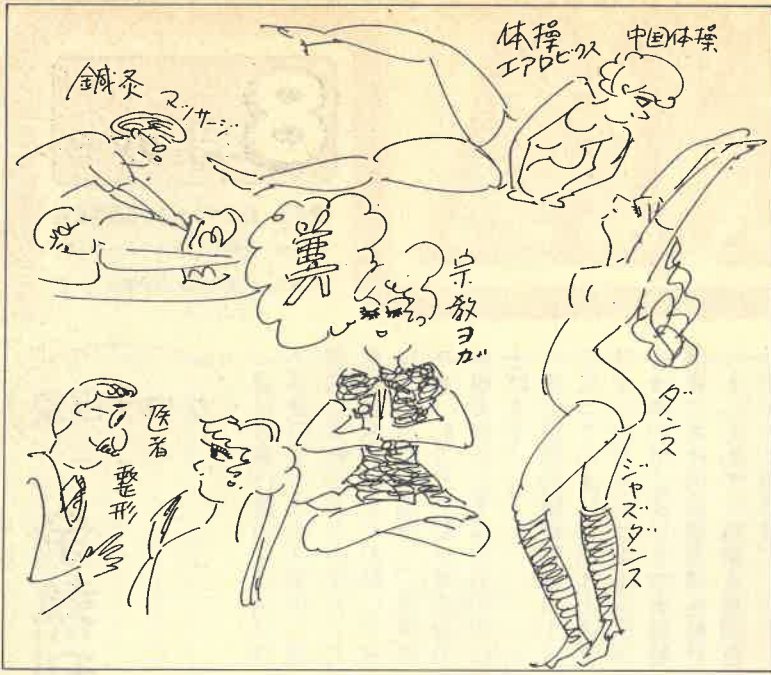 鍼灸
マッサージ
体操
エアロビクス
中国体操
宗教ヨガ
医者
整形
ダンス
ジャズダンス